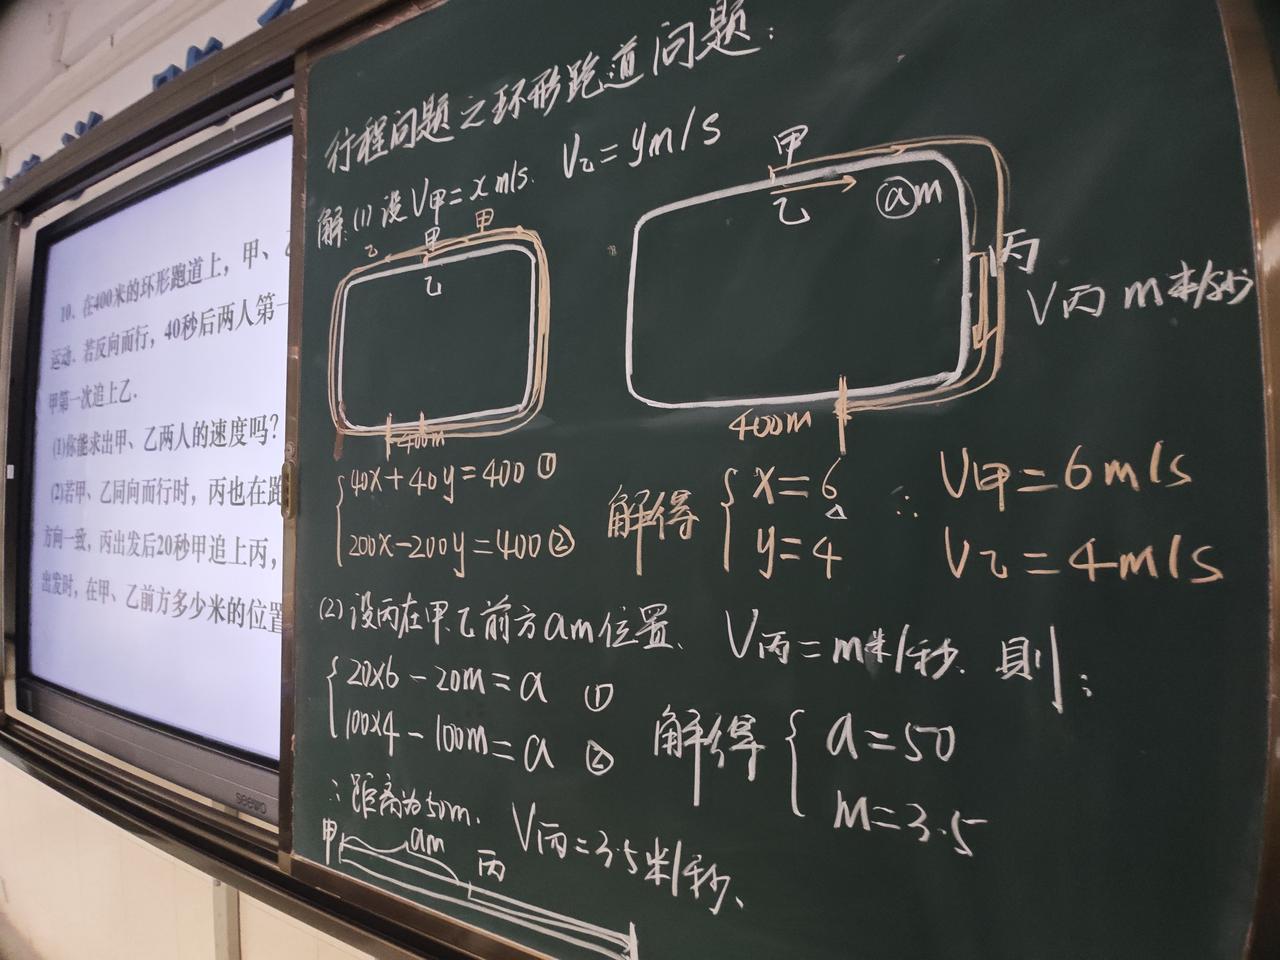 10、在400米的环形跑道上，甲、乙
运动．若反向而行，40秒后两人第一
甲第一次追上乙．
(1)你能求出甲、乙两人的速度吗？
(2)若甲、乙同向而行时，丙也在跑
方向一致，丙出发后20秒甲追上丙，
出发时，在甲、乙前方多少米的位置
seewo
行程问题之环形跑道问题：
解：(1)设V甲=x m/s. V乙=ym/s
乙 甲 甲
乙
400m
甲
乙
ⓐm
丙
V丙 m米/秒
400m
40x+40y=400 ①
200x-200y=400 ②
解得
x=6
y=4
∴ V甲=6m/s
V乙=4m/s
(2)设丙在甲、乙前方am位置、 V丙=m米/秒. 则：
20×6-20m=a ①
100×4-100m=a ②
解得
a=50
m=3.5
∴距离为50m. V丙=3.5米/秒、
甲 am 丙